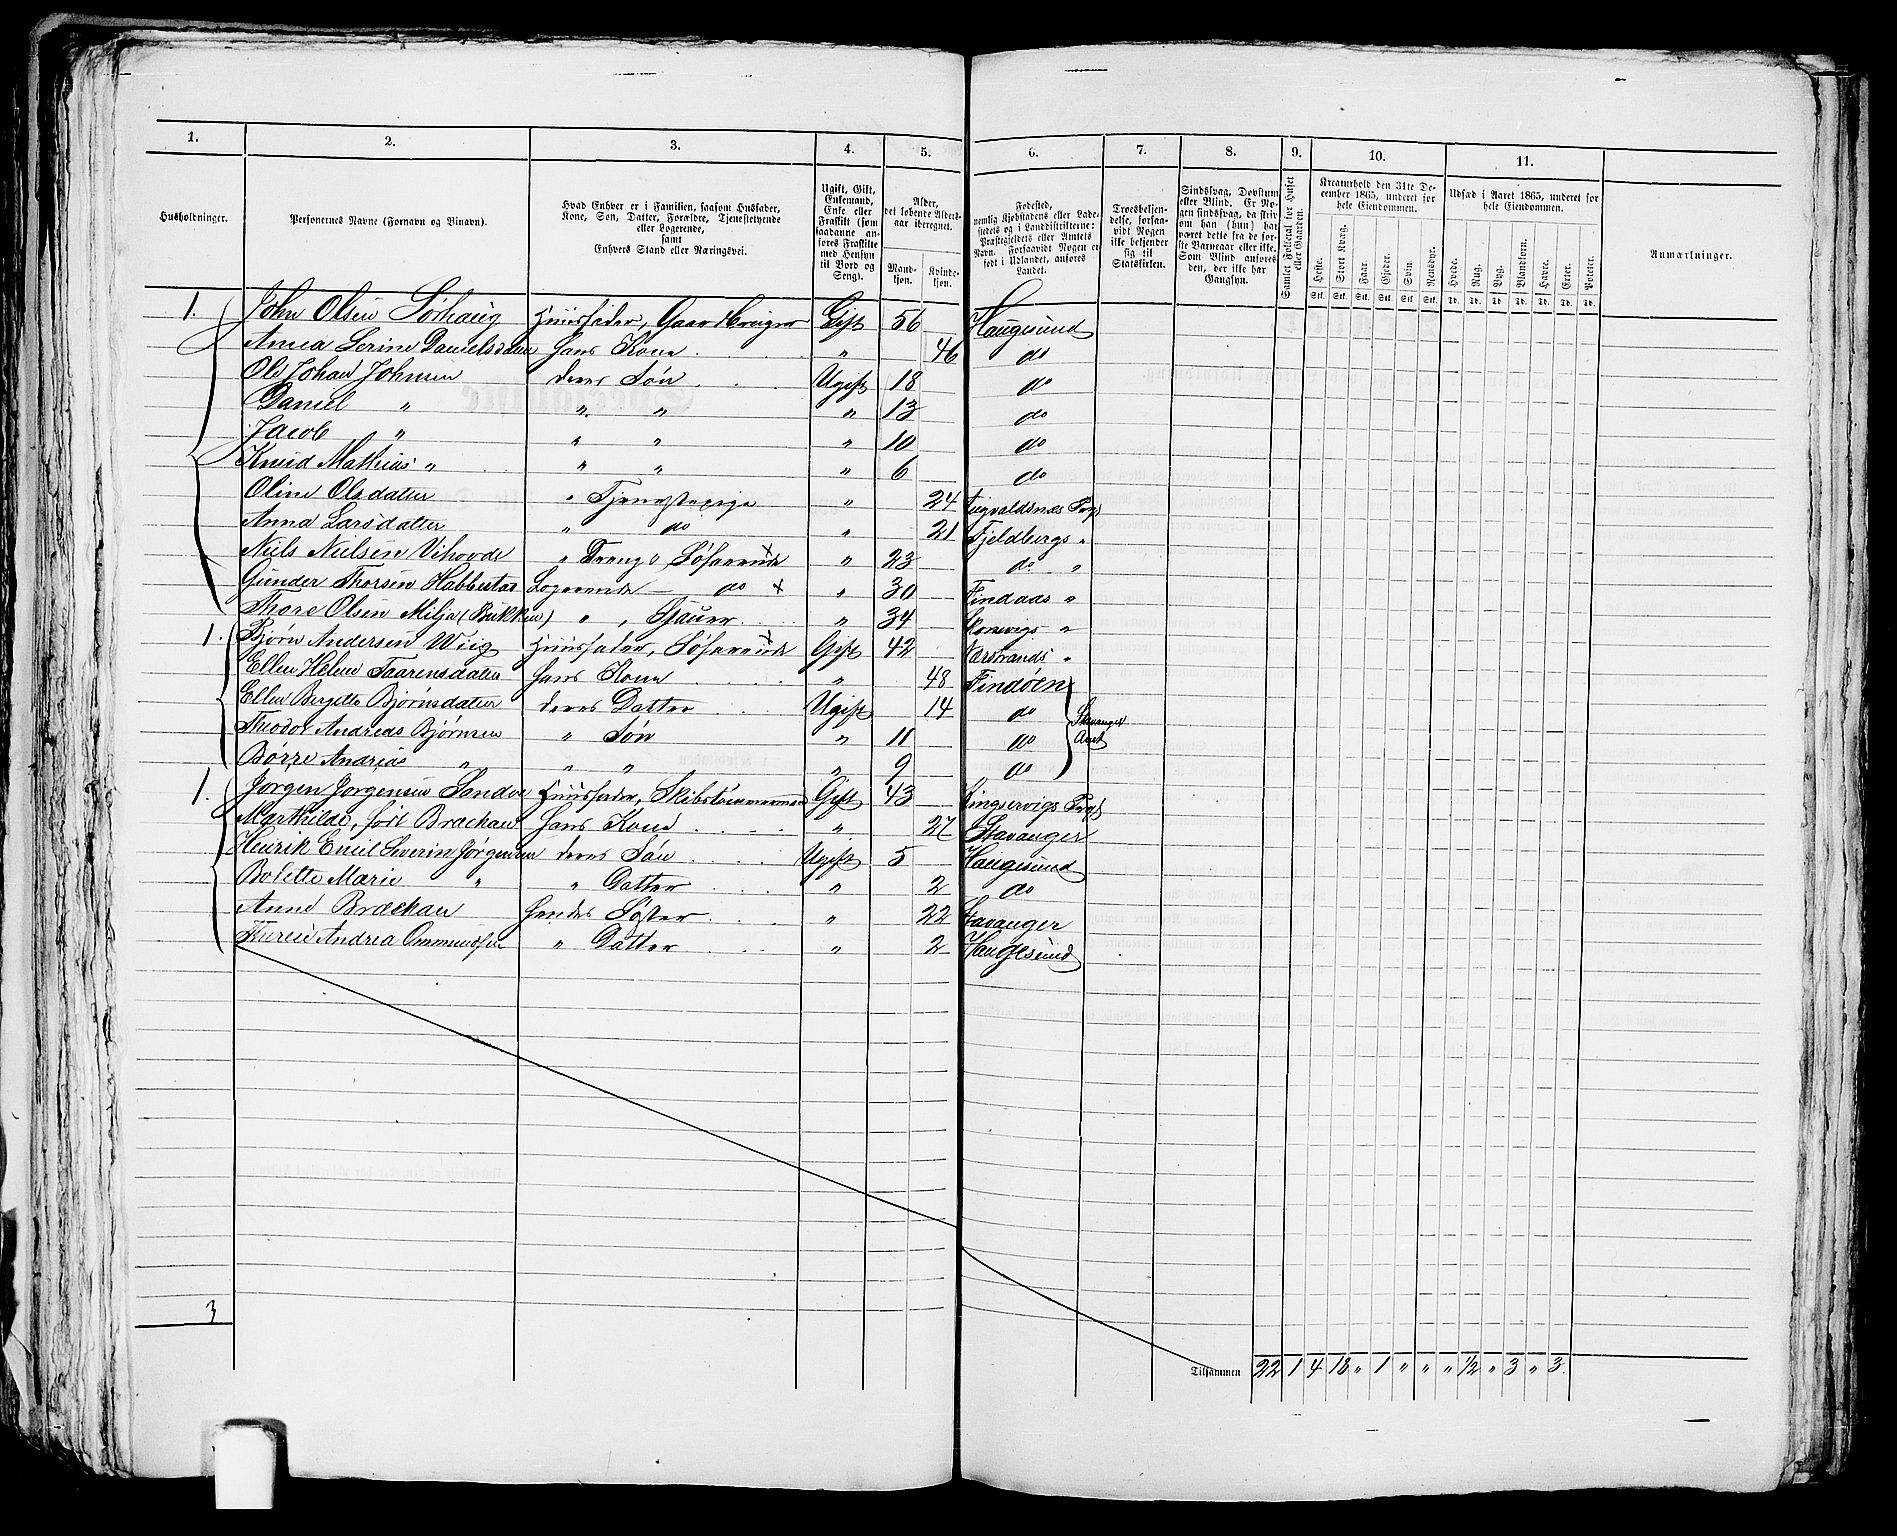 1. 2. 3. 4. 5. 6. 7. 8. 9. 10. 11.
Husholdninger.
Personernes Navne (Fornavn og Binavn).
Hvad Enhver er i Familien, saasom Husfader, Kone, Søn, Datter, Forældre, Tjenestetyende eller Logerende, samt Enhvers Stand eller Næringsvei.
Ugift, Gift, Enkemand, Enke eller Fraskilt (som saadanne anføres Fraskilte med Hensyn til Bord og Seng).
Alder, det løbende Aldersaar iberegnet.
Mandkjøn. Kvindekjøn.
Fødested, nemlig Kjøbstadens eller Ladestedets og i Landdistrikterne: Præstegjeldets eller Amtets Navn. Forsaavidt Nogen er født i Udlandet, anføres Landet.
Troesbekjendelse, forsaavidt Nogen ikke bekjender sig til Statskirken.
Sindssvag, Døvstum eller Blind. Er Nogen sindssvag, da skrives om han (hun) har været dette fra de første Barneaar eller ikke. Som Blind anføres den, der ikke har Gangsyn.
Samlet Folketal for Huset eller Gaarden.
Kreaturhold den 31te December 1865, underet for hele Eiendommen.
Heste. Stort Kvæg. Faar. Gjeder. Svin. Rensdyr.
Udsæd i Aaret 1865, underet for hele Eiendommen.
Hvede. Rug. Byg. Blandkorn. Havre. Erter. Poteter.
Anmærkninger.
Stk. Stk. Stk. Stk. Stk. Stk. Td. Td. Td. Td. Td. Td. Td.
1. John Olsen Sørhaug Huusfader, Gaardbruger Gift 56 Haugesund
Anna Serine Danielsdatter hans Kone " 46 do
Ole Johan Johnsen deres Søn Ugift 18 do
Daniel " " " " 13 do
Jacob " " " " 10 do
Knud Mathias " " " " 6 do
Oline Olsdatter " Tjenestepige " 24 Augvaldsnæs Prgj
Anna Larsdatter " do " 21 Fjeldbergs "
Niels Nielsen Vihovde " Dreng, Søfarende " 23 do "
Gunder Thorsen Habbestad Logerende — do " 30 Findaas "
Thore Olsen Milja (Bukken) " , Gauer " 34 Skonevigs "
1. Bjørn Andersen Wiig Huusfader, Søfarende Gift 42 Nærstrands "
Ellen Helene Taarensdatter hans Kone " 48 Findøen
Ellen Bergitte Bjørnsdatter deres Datter Ugift 14 do Stavanger Amt
Theodor Andreas Bjørnsen " Søn " 11 do
Børre Andreas " " " " 9 do
1. Jørgen Jørgensen Sandve Huusfader, Skibstømmermand Gift 43 Kingservigs Prgj
Marthilde, født Brækhau hans Kone " 27 Stavanger
Henrik Emil Severin Jørgensen deres Søn Ugift 5 Haugesund
Bolette Marie " " Datter " 2 do
Anne Brækhau hendes Søster " 22 Stavanger
Karen Andrea Ommundsen " Datter " 2 Haugesund
3
Tilsammen 22 1 4 18 " 1 " " " 1/2 " 3 " 3